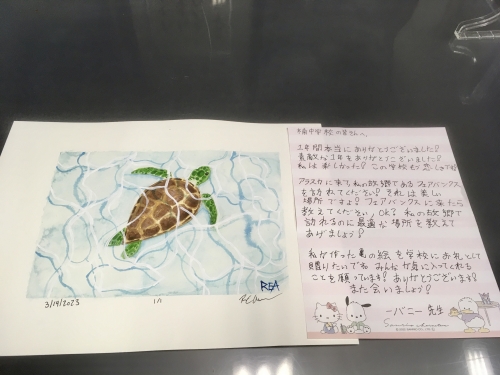 REA
3/14/2023
1/1
中学校の皆さんへ
1年間本当にありがとうございました!
素敵な1年をありがとうございます!
私は楽しかった! この学校も恋しいです!
アラスカに来て私の故郷であるフェアバンクス
を訪れてください! それは美しい
場所ですよ? フェアバンクスに来たら
教えてください, OK? 私の故郷で
訪れるのに最適な場所を教えて
あげましょう!
私が作った亀の絵を学校にお礼として
贈りたいです みんなが気に入ってくれる
ことを願っています! ありがとうございます!
また会いましょう!
ーバニー 先生